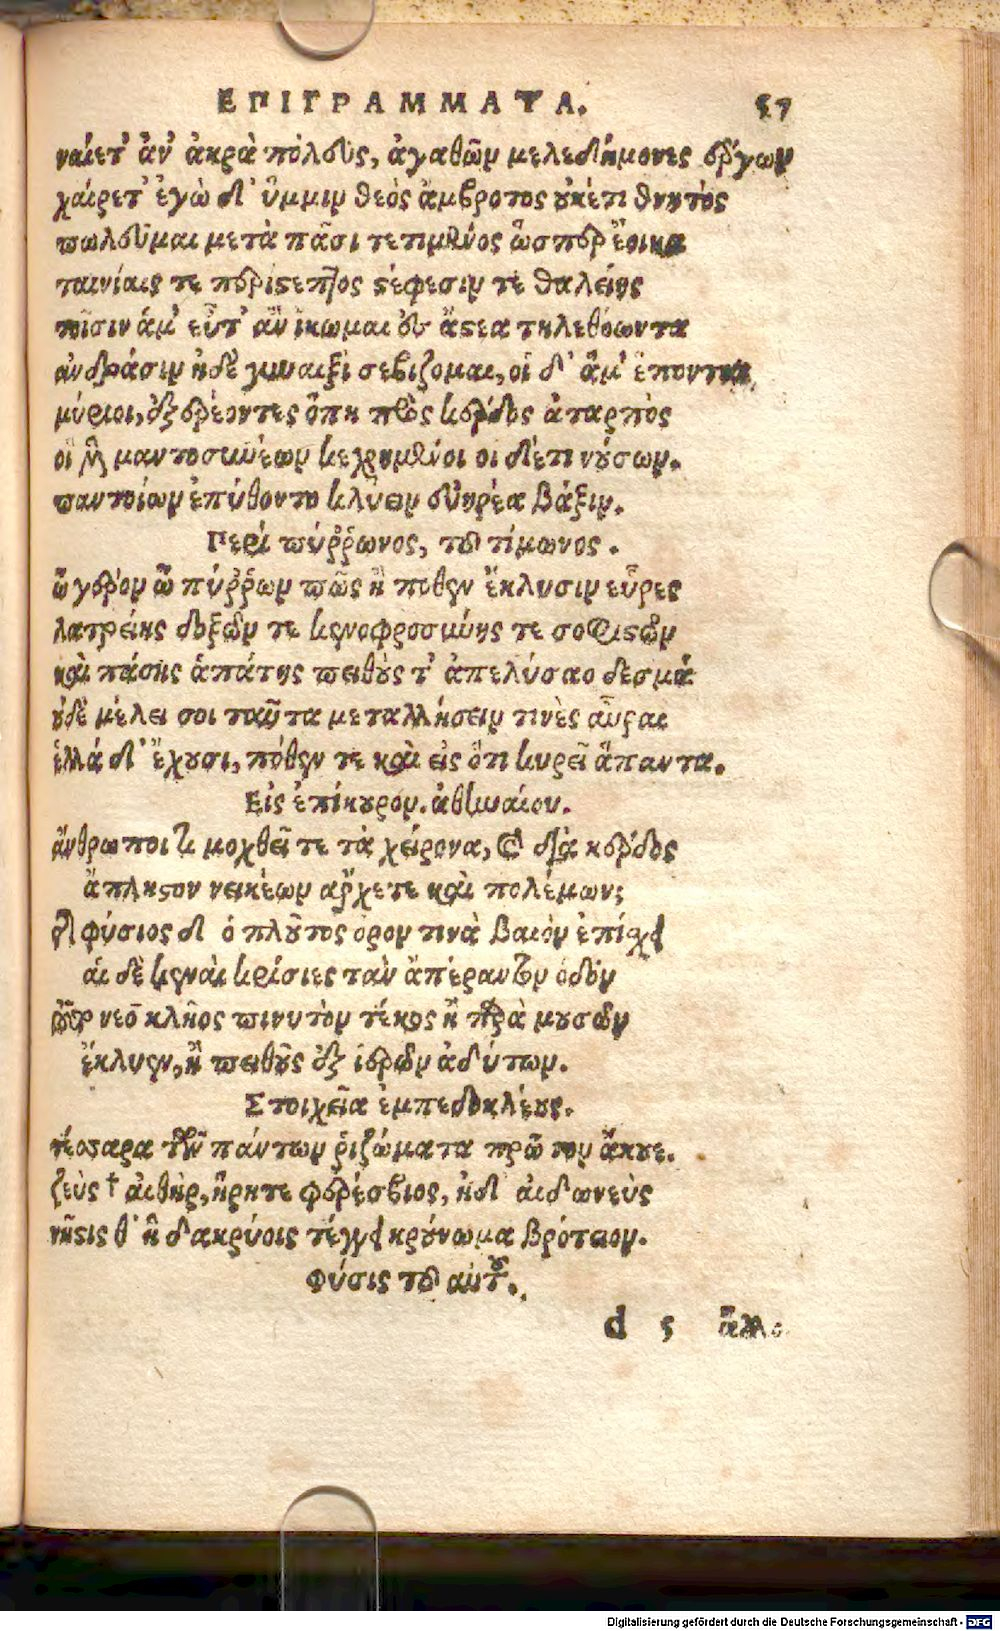 ΕΠΙΓΡΑΜΜΑΤΑ. 57
ναίετ' ἀν' ἀκρὰ πόλευς, ἀγαθῶν μελεδήμονες ἔργων
χαίρετ' ἐγὼ δ' ὔμμιν θεὸς ἄμβροτος οὐκέτι θνητὸς
πωλεῦμαι μετὰ πᾶσι τετιμένος ὥσπερ ἔοικα
ταινίαις τε περίστεπτος στέφεσιν τε θαλείης
τοῖσιν ἅμ' εὖτ' ἂν ἵκωμαι ἐς ἄστεα τηλεθόωντα
ἀνδράσιν ἠδὲ γυναιξὶ σεβίζομαι, οἱ δ' ἅμ' ἕπονται,
μύριοι, ἐξερέοντες ὅπη πρὸς κέρδος ἀταρπὸς
οἱ μὲν μαντοσυνέων κεχρημένοι οἱ δέ τι νούσων.
παντοίων ἐπύθοντο κλύειν εὐηρέα βάξιν.
Περὶ πύῤῥωνος, τοῦ τίμωνος.
ὦ γέρον ὦ πύῤῥων πῶς ἢ πόθεν ἔκλυσιν εὗρες
λατρείης δοξῶν τε κενοφροσύνης τε σοφιστῶν
καὶ πάσης ἀπάτης πειθοῦς τ' ἀπελύσαο δεσμά
οὐδὲ μέλει σοι ταῦτα μεταλλήσειν τινὲς αὖραι
ἑλλάδ' ἔχουσι, πόθεν τε καὶ εἰς ὅτι κυρεῖ ἅπαντα.
Εἰς ἐπίκουρον. ἀθηναίου.
ἄνθρωποι μοχθεῖτε τὰ χείρονα, καὶ διὰ κέρδος
ἄπληστον νεικέων ἄρχετε καὶ πολέμων;
τᾶς φύσιος δ' ὁ πλοῦτος ὅρον τινὰ βαιὸν ἐπίσχει
αἱ δὲ κεναὶ κρίσιες τὰν ἀπέραντον ὁδόν
τοῦτο νεοκλῆος πινυτὸν τέκος ἢ παρὰ μουσῶν
ἔκλυεν, ἢ πειθοῦς ἐξ ἱερῶν ἀδύτων.
Στοιχεῖα ἐμπεδοκλέους.
τέσσαρα τῶν πάντων ῥιζώματα πρῶτον ἄκουε.
ζεὺς † αἰθὴρ, ἥρη τε φερέσβιος, ἠδ' αἰδωνεὺς
νῆστις θ' ἣ δακρύοις τέγγει κρούνωμα βρότειον.
Φύσις τοῦ αὐτοῦ.
d 5 ἄλλο
Digitalisierung gefördert durch die Deutsche Forschungsgemeinschaft - DFG